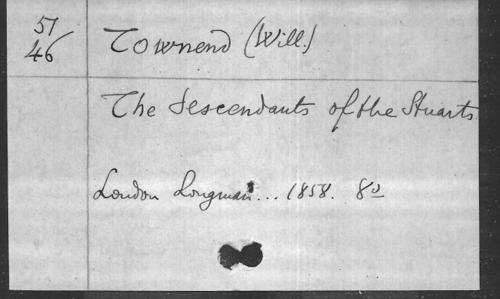 51
46
Townend (Will.)
The descendants of the Stuarts
London Longman... 1858. 8º